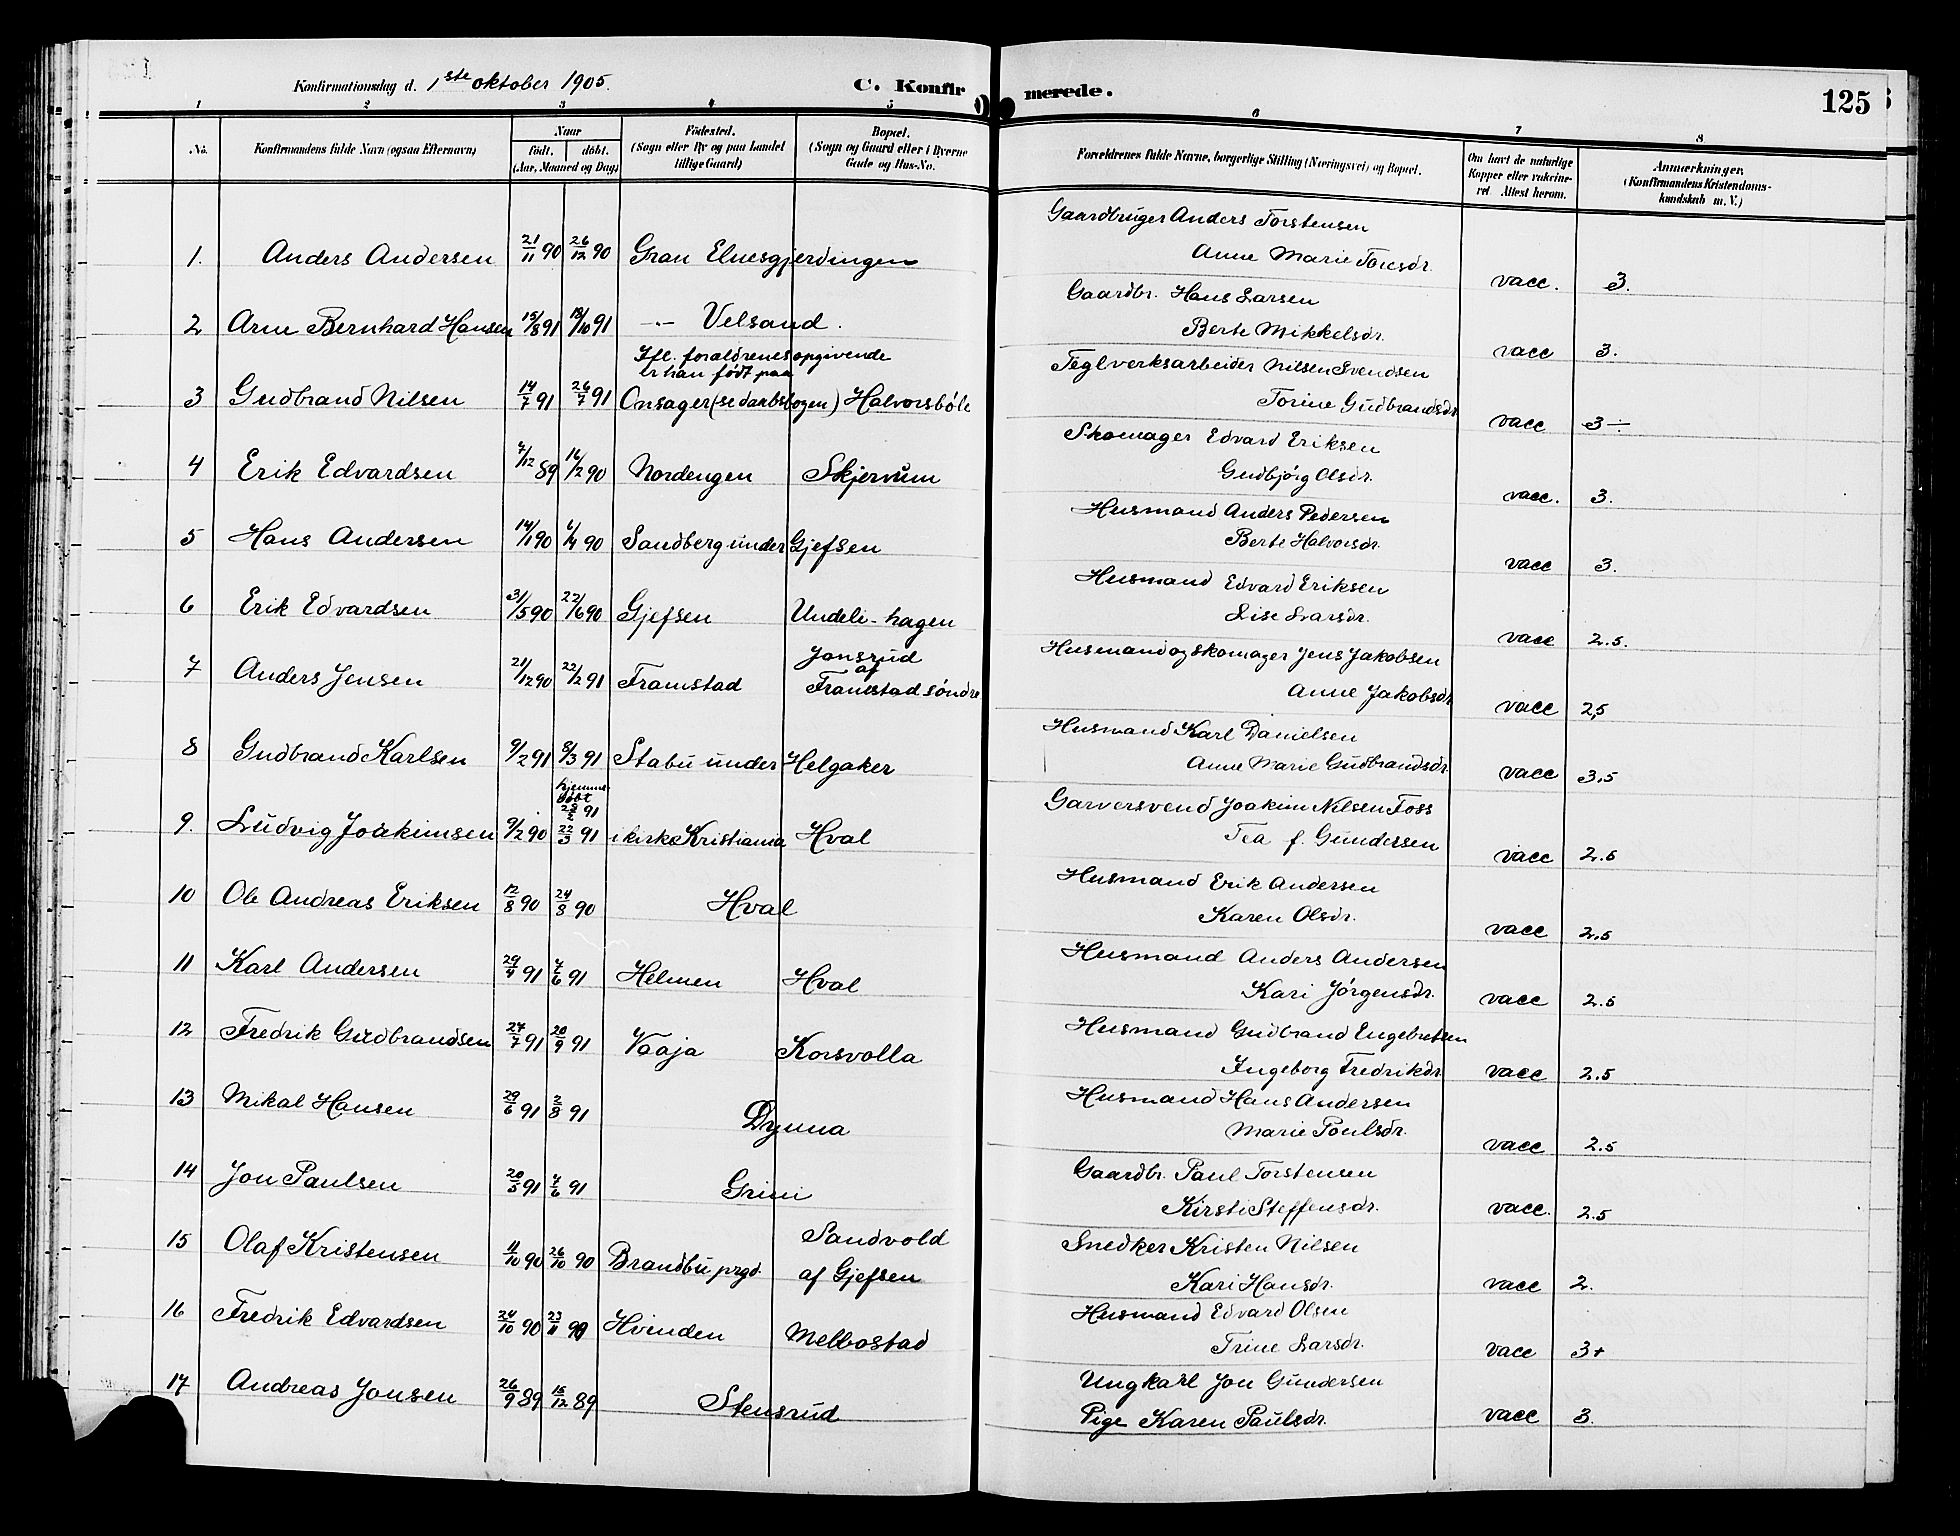 Konfirmationsdag d. 1ste oktober 1905.
C. Konfirmerede.
125
1 2 3 4 5 6 7 8
No.
Konfirmandens fulde Navn (ogsaa Efternavn)
Naar
født. døbt.
(Aar, Maaned og Dag)
Fødested.
(Sogn eller By og paa Landet
tillige Gaard)
Bopæl.
(Sogn og Gaard eller i Byerne
Gade og Hus-No.
Forældrenes fulde Navne, borgerlige Stilling (Næringsvei) og Bopæl.
Om havt de naturlige
Kopper eller vakcine-
ret. Attest herom.
Anmærkninger.
(Konfirmandens Kristendoms-
kundskab m. V.)
Gaardbruger Anders Torstensen
1. Anders Andersen 21/11 90 26/12 90 Gran Elnesgjerdingen Anne Marie Toresdr. vacc. 3.
Gaardbr. Hans Larsen
2 Arne Bernhard Hansen 15/8 91 18/10 91 -"- Velsand. Berte Mikkelsdr. vacc 3.
Ifl. forældrenes opgivende
er han født paa
Teglverksarbeider Nilsen Svendsen
3 Gudbrand Nilsen 14/7 91 26/7 91 Onsager (se daabsbogen) Halvorsbøle Torine Gudbrandsdr vacc 3 ÷
Skomager Edvard Eriksen
4 Erik Edvardsen 7/12 89 16/2 90 Nordengen Skjervum Gudbjørg Olsdr. vacc. 3.
Husmand Anders Pedersen
5 Hans Andersen 14/1 90 7/4 90 Sandberg under Gjefsen Berte Halvorsdr. vacc 3.
Husmand Edvard Eriksen
6 Erik Edvardsen 31/5 90 22/6 90 Gjefsen Undeli-hagen Lise Larsdr. vacc 2.5.
Husmand og skomager Jens Jakobsen
Jonsrud
af
7 Anders Jensen 21/12 90 22/2 91 Framstad Framstad søndre Anne Jakobsdr vacc 2,5
Husmand Karl Danielsen
8 Gudbrand Karlsen 9/2 91 8/3 91 Stabu under Helgaker Anne Marie Gudbrandsdr. vacc 3,5
hjemme
døbt
Garversvend Joakim Nilsen Foss
9. Ludvig Joakimsen 9/2 90 22/3 91 i kirke Kristiania Hval Tea f. Gundersen vacc 2.5
Husmand Erik Andersen
10 Ole Andreas Eriksen 12/8 90 24/8 90 Hval Karen Olsdr. vacc 2.5
Husmand Anders Andersen
11 Karl Andersen 29/4 91 7/6 91 Helmen Hval Kari Jørgensdr. vacc 2.5
Husmand Gudbrand Engebretsen
12 Fredrik Gudbrandsen 27/7 91 20/9 91 Vaaja Korsvolla Ingeborg Fredrikdr. vacc 2.5
Husmand Hans Andersen
13 Mikal Hansen 29/6 91 2/8 91 Dynna Marie Poulsdr. vacc 2.5
Gaardbr. Paul Torstensen
14 Jon Paulsen 20/5 91 7/6 91 Grini Kirsti Steffensdr. vacc. 2.5
Sandvold
Snedker Kristen Nilsen
15 Olaf Kristensen 11/10 90 26/10 90 Brandbu prgd. af Gjefsen Kari Hansdr. vacc 2.
Husmand Edvard Olsen
16 Fredrik Edvardsen 24/10 90 23/11 90 Hvinden Melbostad Trine Larsdr. vacc 3+
Ungkarl Jon Gundersen
17 Andreas Jonsen 26/9 89 15/12 89 Stensrud Pige Karen Paulsdr. vacc 3.